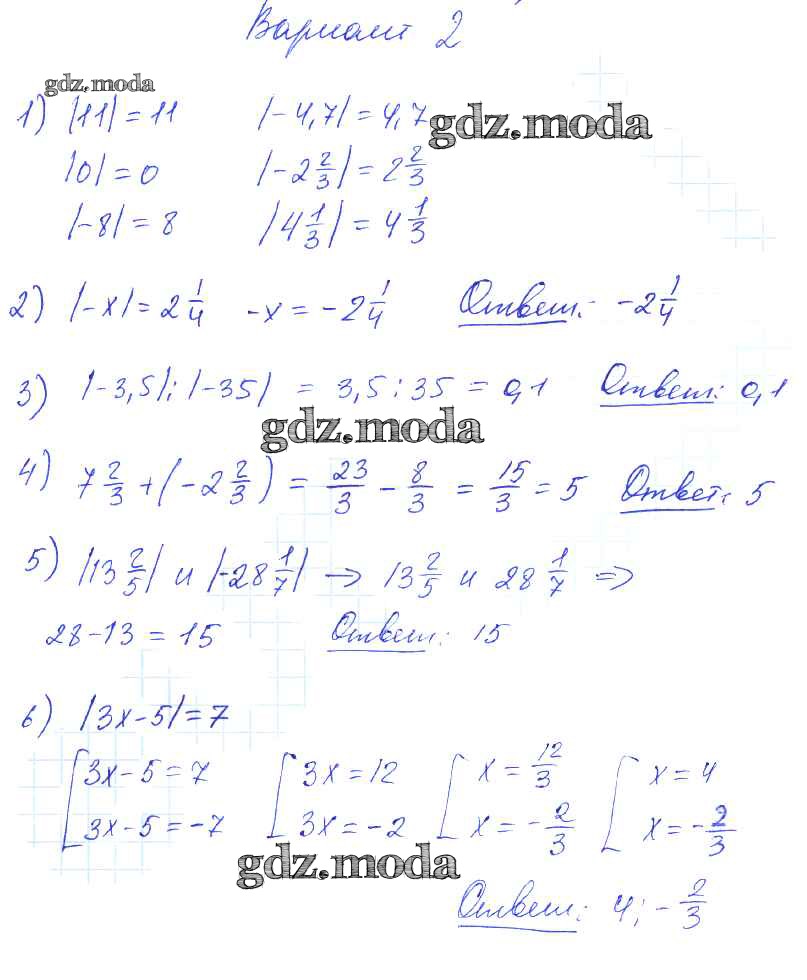 Вариант 2
gdz.moda
1) |11| = 11 |-4,7| = 4,7
gdz.moda
|0| = 0 |-2 2/3| = 2 2/3
|-8| = 8 |4 1/3| = 4 1/3
2) |-x| = 2 1/4 -x = -2 1/4 Ответ: -2 1/4
3) |-3,5| : |-35| = 3,5 : 35 = 0,1 Ответ: 0,1
gdz.moda
4) 7 2/3 + (-2 2/3) = 23/3 - 8/3 = 15/3 = 5 Ответ: 5
5) |13 2/5| и |-28 1/7| → 13 2/5 и 28 1/7 ⇒
28-13 = 15 Ответ: 15
6) |3x-5| = 7
[3x-5 = 7 [3x = 12 [x = 12/3 [x = 4
3x-5 = -7 3x = -2 x = -2/3 x = -2/3
gdz.moda
Ответ: 4; -2/3